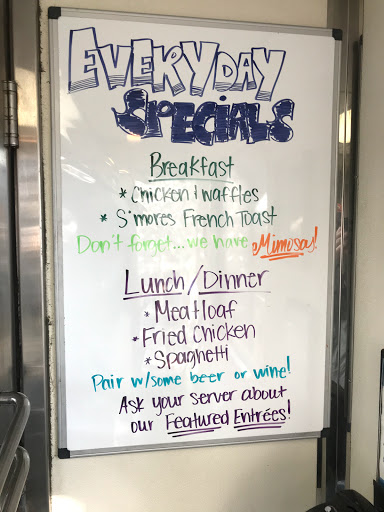 EVERYDAY
SPECIALS
Breakfast
* Chicken & waffles
* S'mores French Toast
Don't forget...we have Mimosas!
Lunch/Dinner
* Meatloaf
* Fried Chicken
* Spaghetti
Pair w/some beer or wine!
Ask your server about
our Featured Entrées!